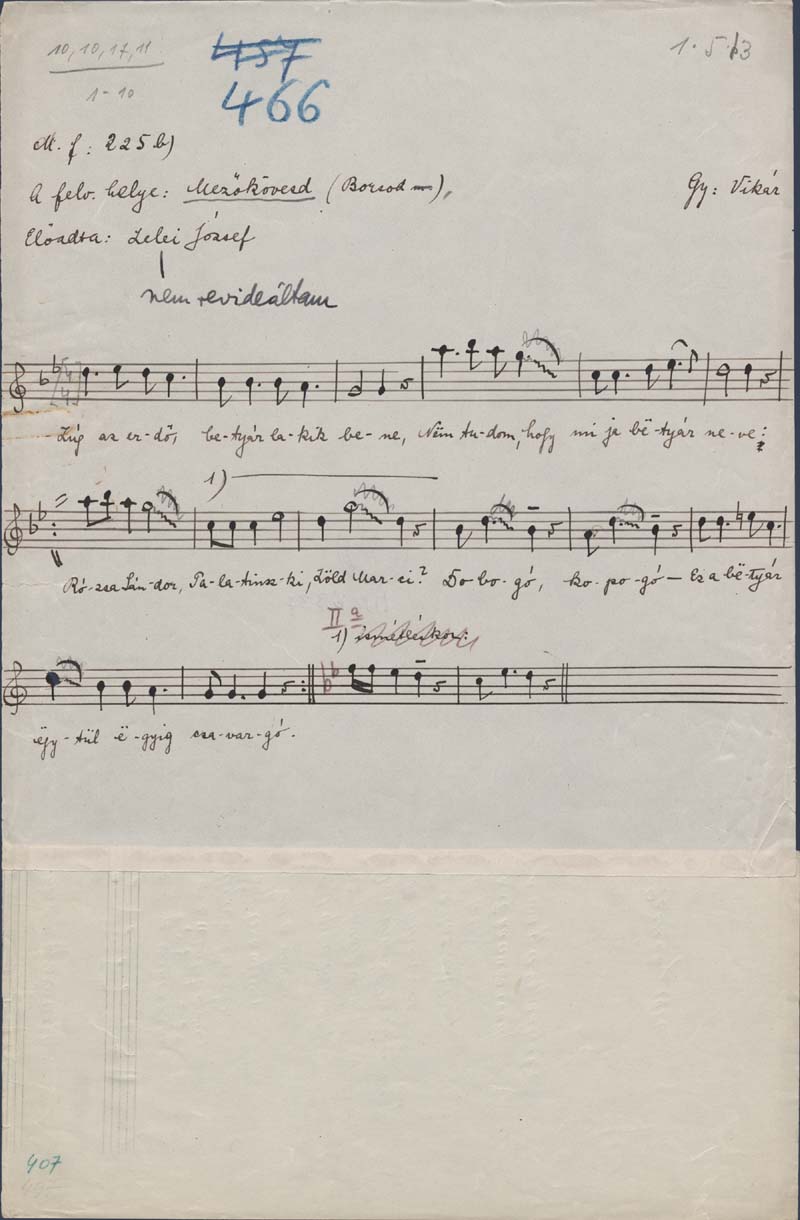 10, 10, 17, 11
1-10
457
466
1. 5. 13
M. f: 225 b)
A felv. helye: Mezőkövesd (Borsod m),
Gy: Vikár
Előadta: Lelei József
nem revideáltam
Zúg az er-dő, be-tyár la-kik be-ne, Nëm tu-dom, hogy mi ja bë-tyár ne-ve:
1)
Ró-zsa Sán-dor, Pa-la-tinsz-ki, Zöld Mar-ci? Do-bo-gó, ko-po-gó – Ez a bë-tyár
II a
1) ismétléskor:
ëgy-tül ë-gyig csa-var-gó.
407